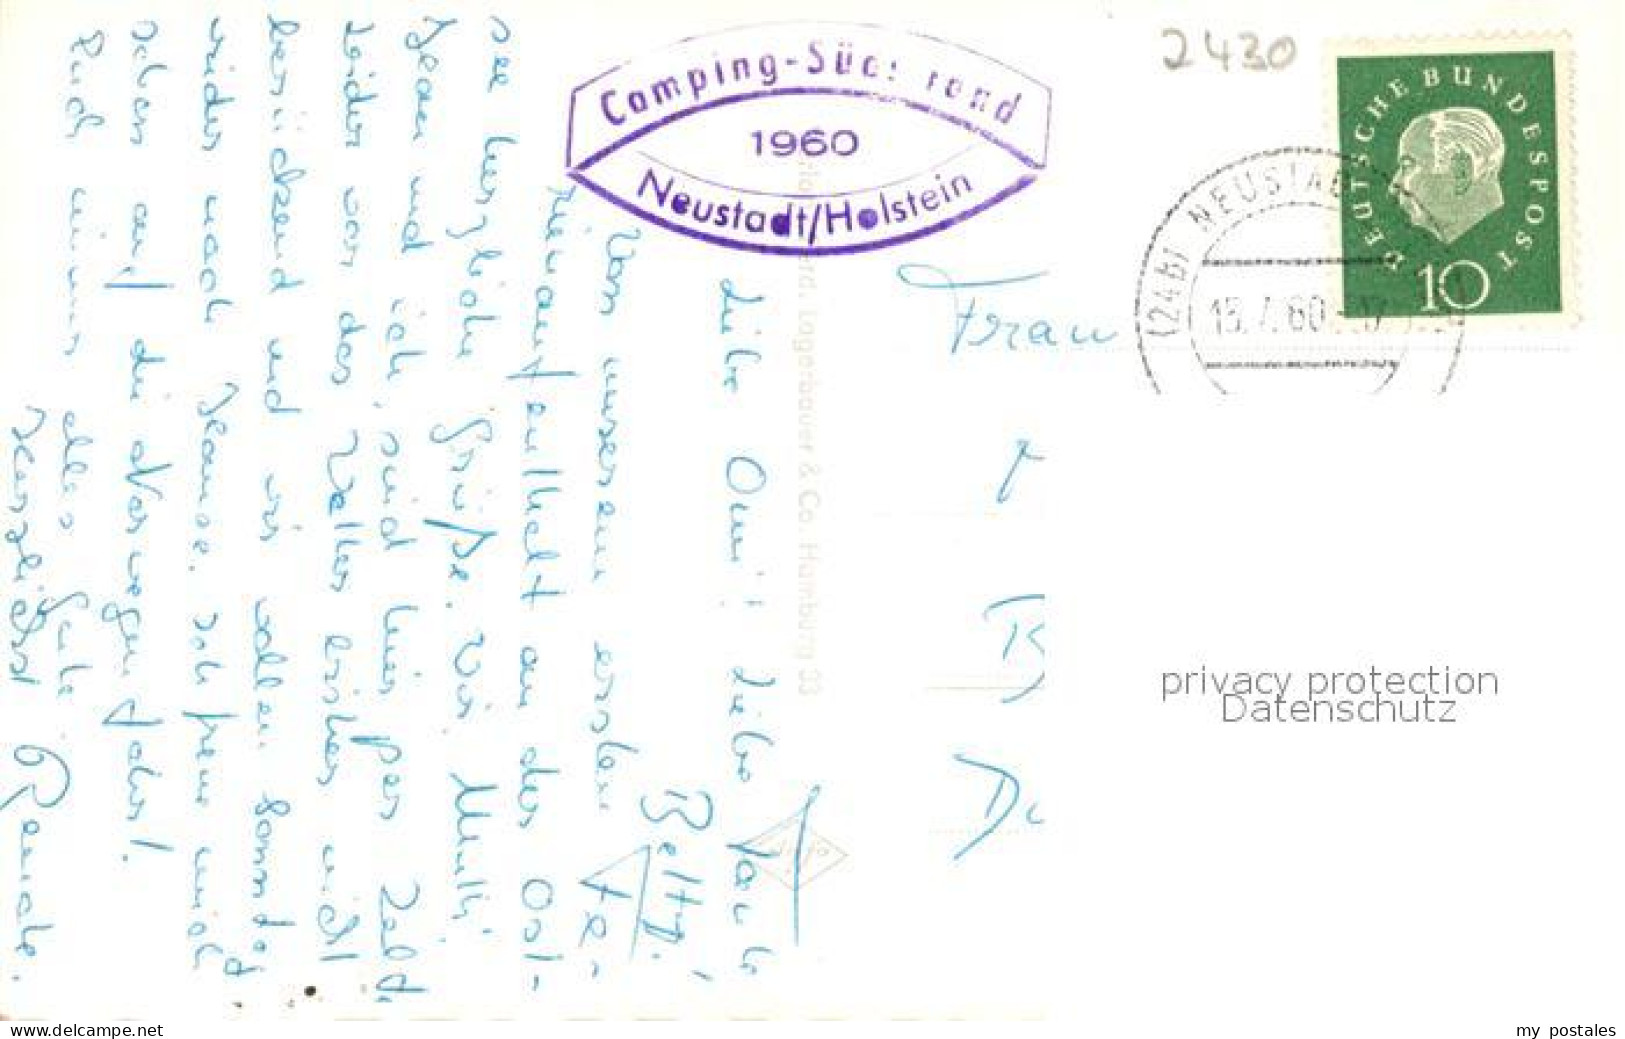 2430
Camping-Süd: rand
1960
Neustadt/Holstein
DEUTSCHE BUNDESPOST
10
(24b) NEUSTADT
15.7.60-17
Frau
Liebe Omi! Liebe Tante
Betty!
Von unserem ersten Fe-
rienaufenthalt an der Ost-
see herzliche Grüße. Wir, Mutti,
und ich, sind hier per Zelt.
Leider war das Wetter bisher nicht
berückend und wir wollen Sonntag
wieder nach Hause. Ich freue mich
schon auf die Norwegenfahrt.
Euch immer alles Gute
Herzlichst Renate.
Lagerbauer & Co. Hamburg 33
privacy protection
Datenschutz
www.delcampe.net
my postales